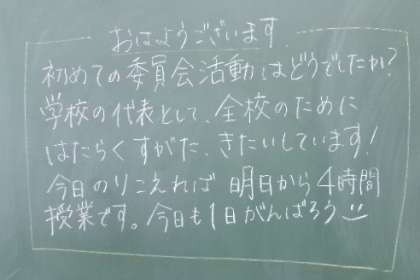 おはようございます
初めての委員会活動はどうでしたか?
学校の代表として、全校のために
はたらくすがた、きたいしています!
今日のりこえれば 明日から4時間
授業です。今日も1日がんばろう